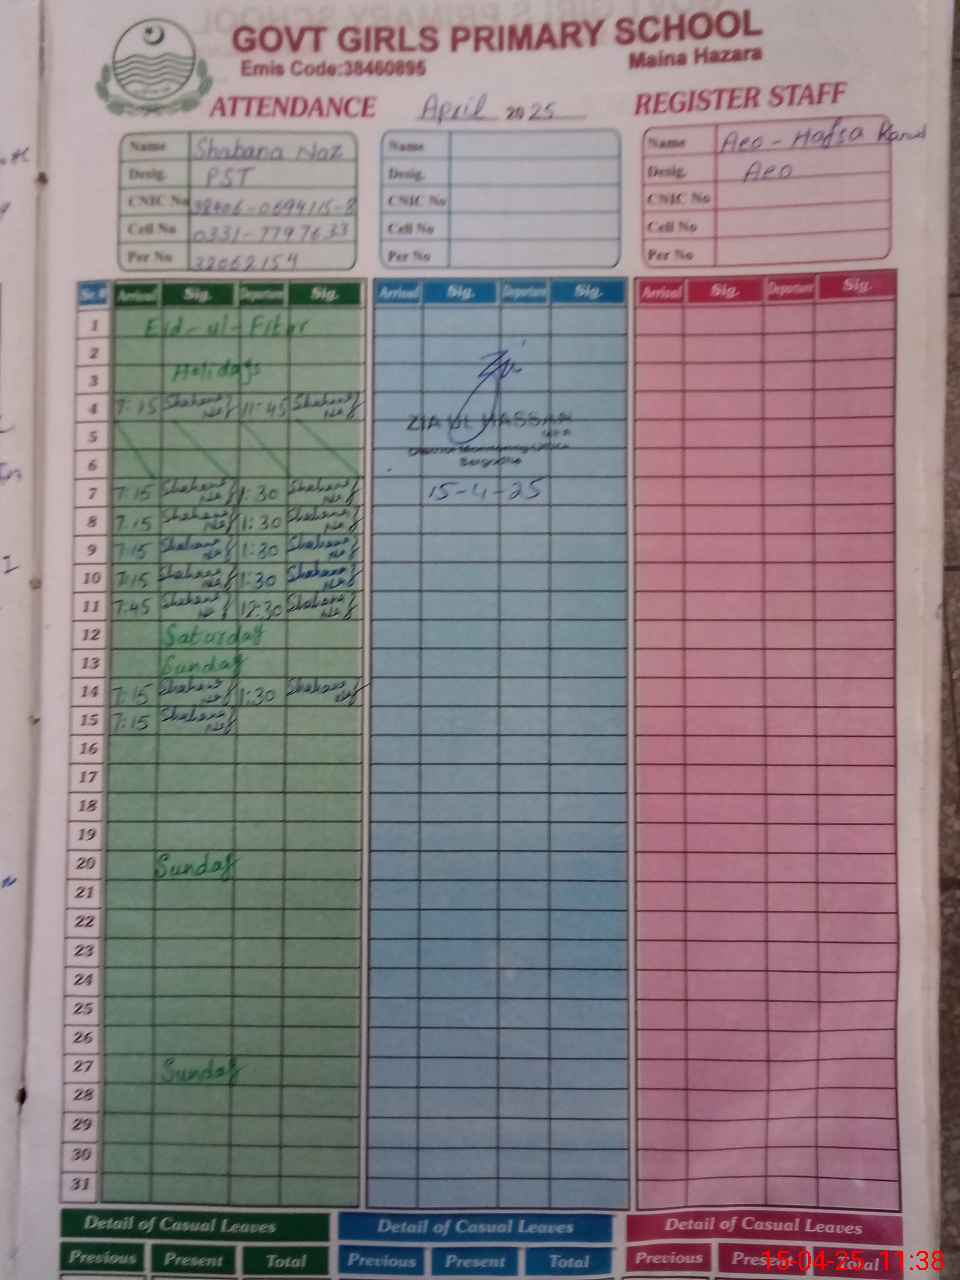 GOVT GIRLS PRIMARY SCHOOL
Emis Code:38460895 Maina Hazara
ATTENDANCE April 2025 REGISTER STAFF
Name Shabana Naz Name Name Aeo - Hafsa Kanwal
Desig. PST Desig. Desig. Aeo
CNIC No 38406-0694115-8 CNIC No CNIC No
Cell No 0331-7797633 Cell No Cell No
Per No 32062154 Per No Per No
Sr.# Arrival Sig. Departure Sig. Arrival Sig. Departure Sig. Arrival Sig. Departure Sig.
1 Eid-ul-Fiter
2
3 Holidays
4 7:15 Shabana Naz 11:45 Shabana Naz ZIA UL HASSAN
5
6 Sargodha
7 7:15 Shabana Naz 1:30 Shabana Naz 15-4-25
8 7:15 Shabana Naz 1:30 Shabana Naz
9 7:15 Shabana Naz 1:30 Shabana Naz
10 7:15 Shabana Naz 1:30 Shabana Naz
11 7:45 Shabana Naz 12:30 Shabana Naz
12 Saturday
13 Sunday
14 7:15 Shabana Naz 1:30 Shabana Naz
15 7:15 Shabana Naz
16
17
18
19
20 Sunday
21
22
23
24
25
26
27 Sunday
28
29
30
31
Detail of Casual Leaves Detail of Casual Leaves Detail of Casual Leaves
Previous Present Total Previous Present Total Previous Present Total
15-04-25 11:38